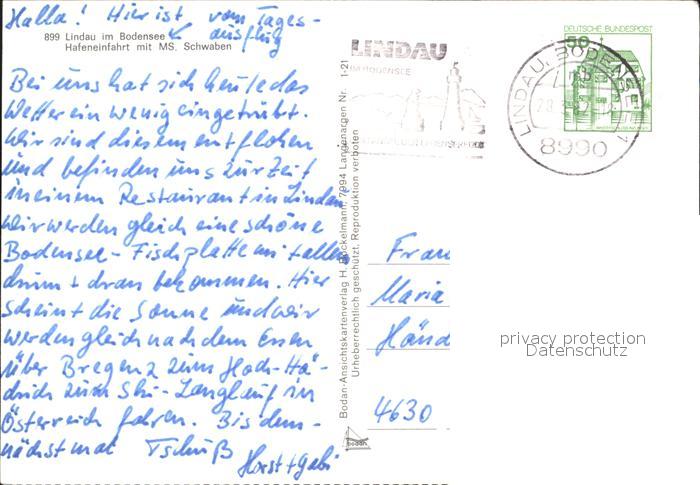 Hallo! Hier ist vom Tages-
ausflug
899 Lindau im Bodensee
Hafeneinfahrt mit MS. Schwaben
Bei uns hat sich heute das
Wetter ein wenig eingetrübt.
Wir sind diesem entflohen
und befinden uns zur Zeit
in einem Restaurant in Lindau
wir werden gleich eine schöne
Bodensee-Fischplatte mit allem
drum + dran bekommen. Hier
scheint die Sonne und wir
werden gleich nach dem Essen
über Bregenz zum Hoch-Hä-
drich zum Ski-Langlauf in
Österreich fahren. Bis dem-
nächst mal Tschüß
Horst + Gabi
Bodan-Ansichtskartenverlag H. Rockelmann, 7994 Langenargen Nr. 1-21
Urheberrechtlich geschützt, Reproduktion verboten
bodan
LINDAU
IM BODENSEE
DEUTSCHE BUNDESPOST
50
LINDAU, BODENSEE 1
8990
Frau
Maria
Händ
4630
privacy protection
Datenschutz